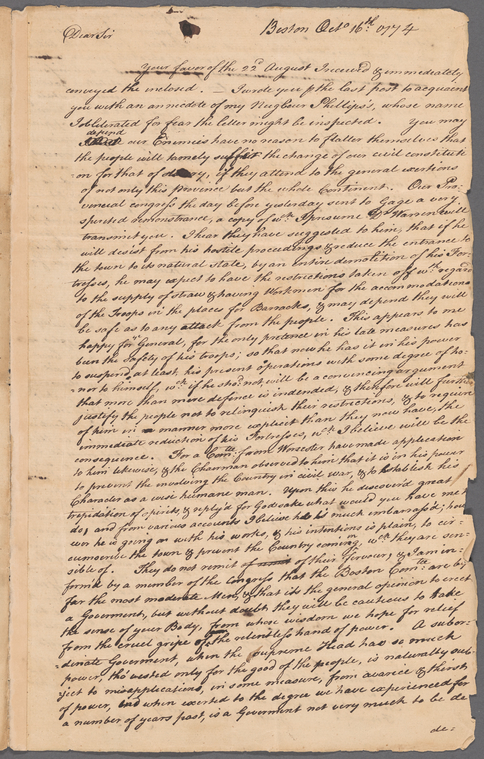 Boston Octo. 16th. 1774
Dear Sir
Your favor of the 22d August I receiv'd & immediately
conveyed the inclosed. I wrote you p the last post to acquaint
you with an annecdote of my Neighbour Phillips's, whose name
I obliterated for fear the letter might be inspected. You may
depend
our Enemies have no reason to flatter themselves that
the people will tamely suffer the change of our civil constituti
on for that of , if they attend to the general exertions
of not only this province but the whole Continent. Our Pro
vencial congress the day before yesterday sent to Gage a very
spirited remonstrance, a copy of wch. I presume Dr Warren will
transmit you. I hear they have suggested to him, that if he
will desist from his hostile proceedings & reduce the entrance to
the town to its natural State, by an entire demolition of his For
tresses, he may expect to have the restrictions taken off wth. regard
to the supply of straw & having Workmen for the accommodations
of the Troops in the places for Barracks, & may depend they will
be safe as to any attack from the people. This appears to me
happy for ye General, for the only pretence in his late measures has
been the safety of his troops; so that now he has it in his power
to suspend at least his present operations with some degree of ho
nor to himself, wch. if he shod. not, will be a convincing argument
that more than mere defence is indended, & therefore will further
justify the people not to relinquish their restrictions, & to require
of him in a manner more explicit than they now have, the
immediate reduction of his Fortresses, wch. I believe will be the
consequence. For a Comtte. from Worcester have made application
to him likewise, & the Chairman observed to him that it is in his power
to prevent the involving the Country in civil war, & to establish his
Character as a wise humane man. Upon this he discover'd great
trepidation of spirits, & reply'd for God sake what would you have me
do; and from various accounts I believe he is much embarass'd; how
ever he is going on with his works, & his intentions is plain, to cir-
cumscribe the town & prevent the Country coming in, wch. they are sen-
sible of. They do not remit of their fervour, & I am in-
form'd by a number of the congress that the Boston Comtte. are by
far the most moderate Men, & that it's the general opinion to erect
a Goverment, but without doubt they will be cautious to take
the sense of your Body, from whose wisdom we hope for relief
from the cruel gripe of the relentless hand of power. A subor-
dinate Goverment, when the supreme Head has so much
power, tho vested only for the good of the people, is naturally sub-
ject to misapplications, in some measure, from avarice & thirst
of power, when exerted to the degree we have experienced for
a number of years past, is a Goverment not very much to be de
de: